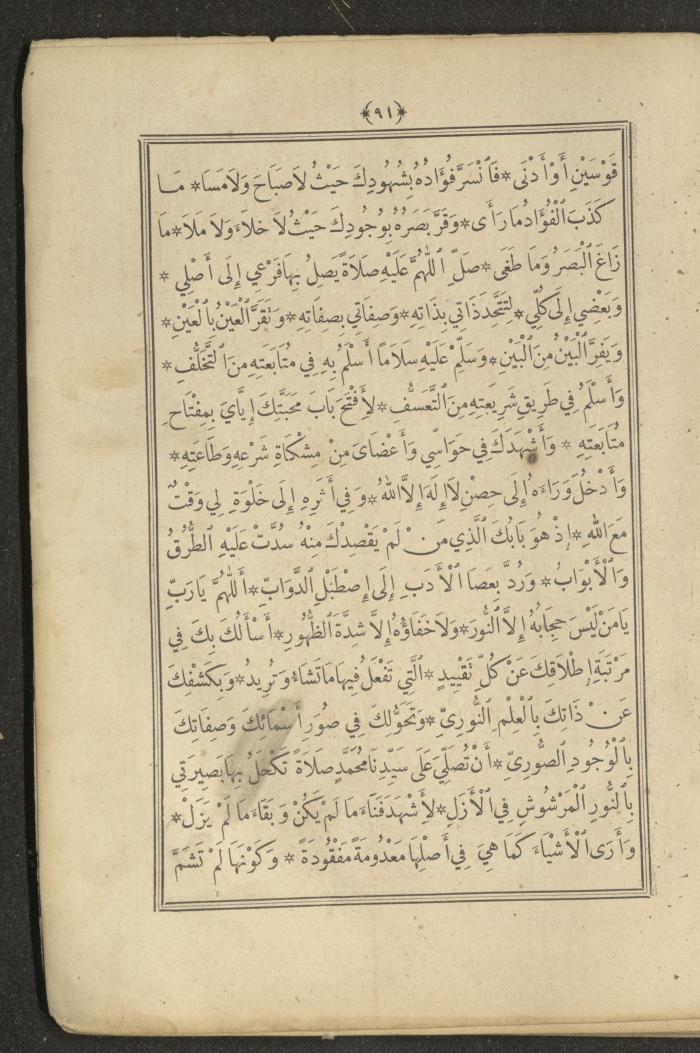 ﴿٩١﴾
قَوْسَيْنِ أَوْ أَدْنَى * فَانْسَرَّ فُؤَادُهُ بِشُهُودِكَ حَيْثُ لاَ صَبَاحَ وَلاَ مَسَا * مَا
كَذَبَ الْفُؤَادُ مَا رَأَى * وَقَرَّ بَصَرُهُ بِوُجُودِكَ حَيْثُ لاَ خَلاَءَ وَلاَ مَلاَ * مَا
زَاغَ الْبَصَرُ وَمَا طَغَى * صَلِّ اللَّهُمَّ عَلَيْهِ صَلاَةً يَصِلُ بِهَا فَرْعِي إِلَى أَصْلِي *
وَبَعْضِي إِلَى كُلِّي * لِتَتَّحِدَ ذَاتِي بِذَاتِهِ * وَصِفَاتِي بِصِفَاتِهِ * وَتَقَرَّ الْعَيْنُ بِالْعَيْنِ *
وَيَفِرَّ الْبَيْنُ مِنَ الْبَيْنِ * وَسَلِّمْ عَلَيْهِ سَلاَمًا أَسْلَمُ بِهِ فِي مُتَابَعَتِهِ مِنَ التَّخَلُّفِ *
وَأَسْلَمُ فِي طَرِيقِ شَرِيعَتِهِ مِنَ التَّعَسُّفِ * لِأَفْتَحَ بَابَ مَحَبَّتِكَ إِيَّايَ بِمِفْتَاحِ
مُتَابَعَتِهِ * وَأَشْهَدَكَ فِي حَوَاسِّي وَأَعْضَايَ مِنْ مِشْكَاةِ شَرْعِهِ وَطَاعَتِهِ *
وَأَدْخُلَ وَرَاءَهُ إِلَى حِصْنِ لاَ إِلَهَ إِلاَّ اللهُ * وَفِي أَثَرِهِ إِلَى خَلْوَةِ لِي وَقْتٌ
مَعَ اللهِ * إِذْ هُوَ بَابُكَ الَّذِي مَنْ لَمْ يَقْصِدْكَ مِنْهُ سُدَّتْ عَلَيْهِ الطُّرُقُ
وَالْأَبْوَابُ * وَرُدَّ بِعَصَا الْأَدَبِ إِلَى إِصْطَبْلِ الدَّوَابِّ * أَللَّهُمَّ يَا رَبِّ
يَا مَنْ لَيْسَ حِجَابُهُ إِلاَّ النُّورَ * وَلاَ خَفَاؤُهُ إِلاَّ شِدَّةَ الظُّهُورِ * أَسْأَلُكَ بِكَ فِي
مَرْتَبَةِ إِطْلاَقِكَ عَنْ كُلِّ تَقْيِيدٍ * الَّتِي تَفْعَلُ فِيهَا مَا تَشَاءُ وَتُرِيدُ * وَبِكَشْفِكَ
عَنْ ذَاتِكَ بِالْعِلْمِ النُّورِيِّ * وَتَحَوُّلِكَ فِي صُوَرِ أَسْمَائِكَ وَصِفَاتِكَ
بِالْوُجُودِ الصُّورِيِّ * أَنْ تُصَلِّيَ عَلَى سَيِّدِنَا مُحَمَّدٍ صَلاَةً تَكْحَلُ بِهَا بَصِيرَتِي
بِالنُّورِ الْمَرْشُوشِ فِي الْأَزَلِ * لِأَشْهَدَ فَنَاءَ مَا لَمْ يَكُنْ وَبَقَاءَ مَا لَمْ يَزَلْ *
وَأَرَى الْأَشْيَاءَ كَمَا هِيَ فِي أَصْلِهَا مَعْدُومَةً مَفْقُودَةً * وَكَوْنَهَا لَمْ تَشَمَّ